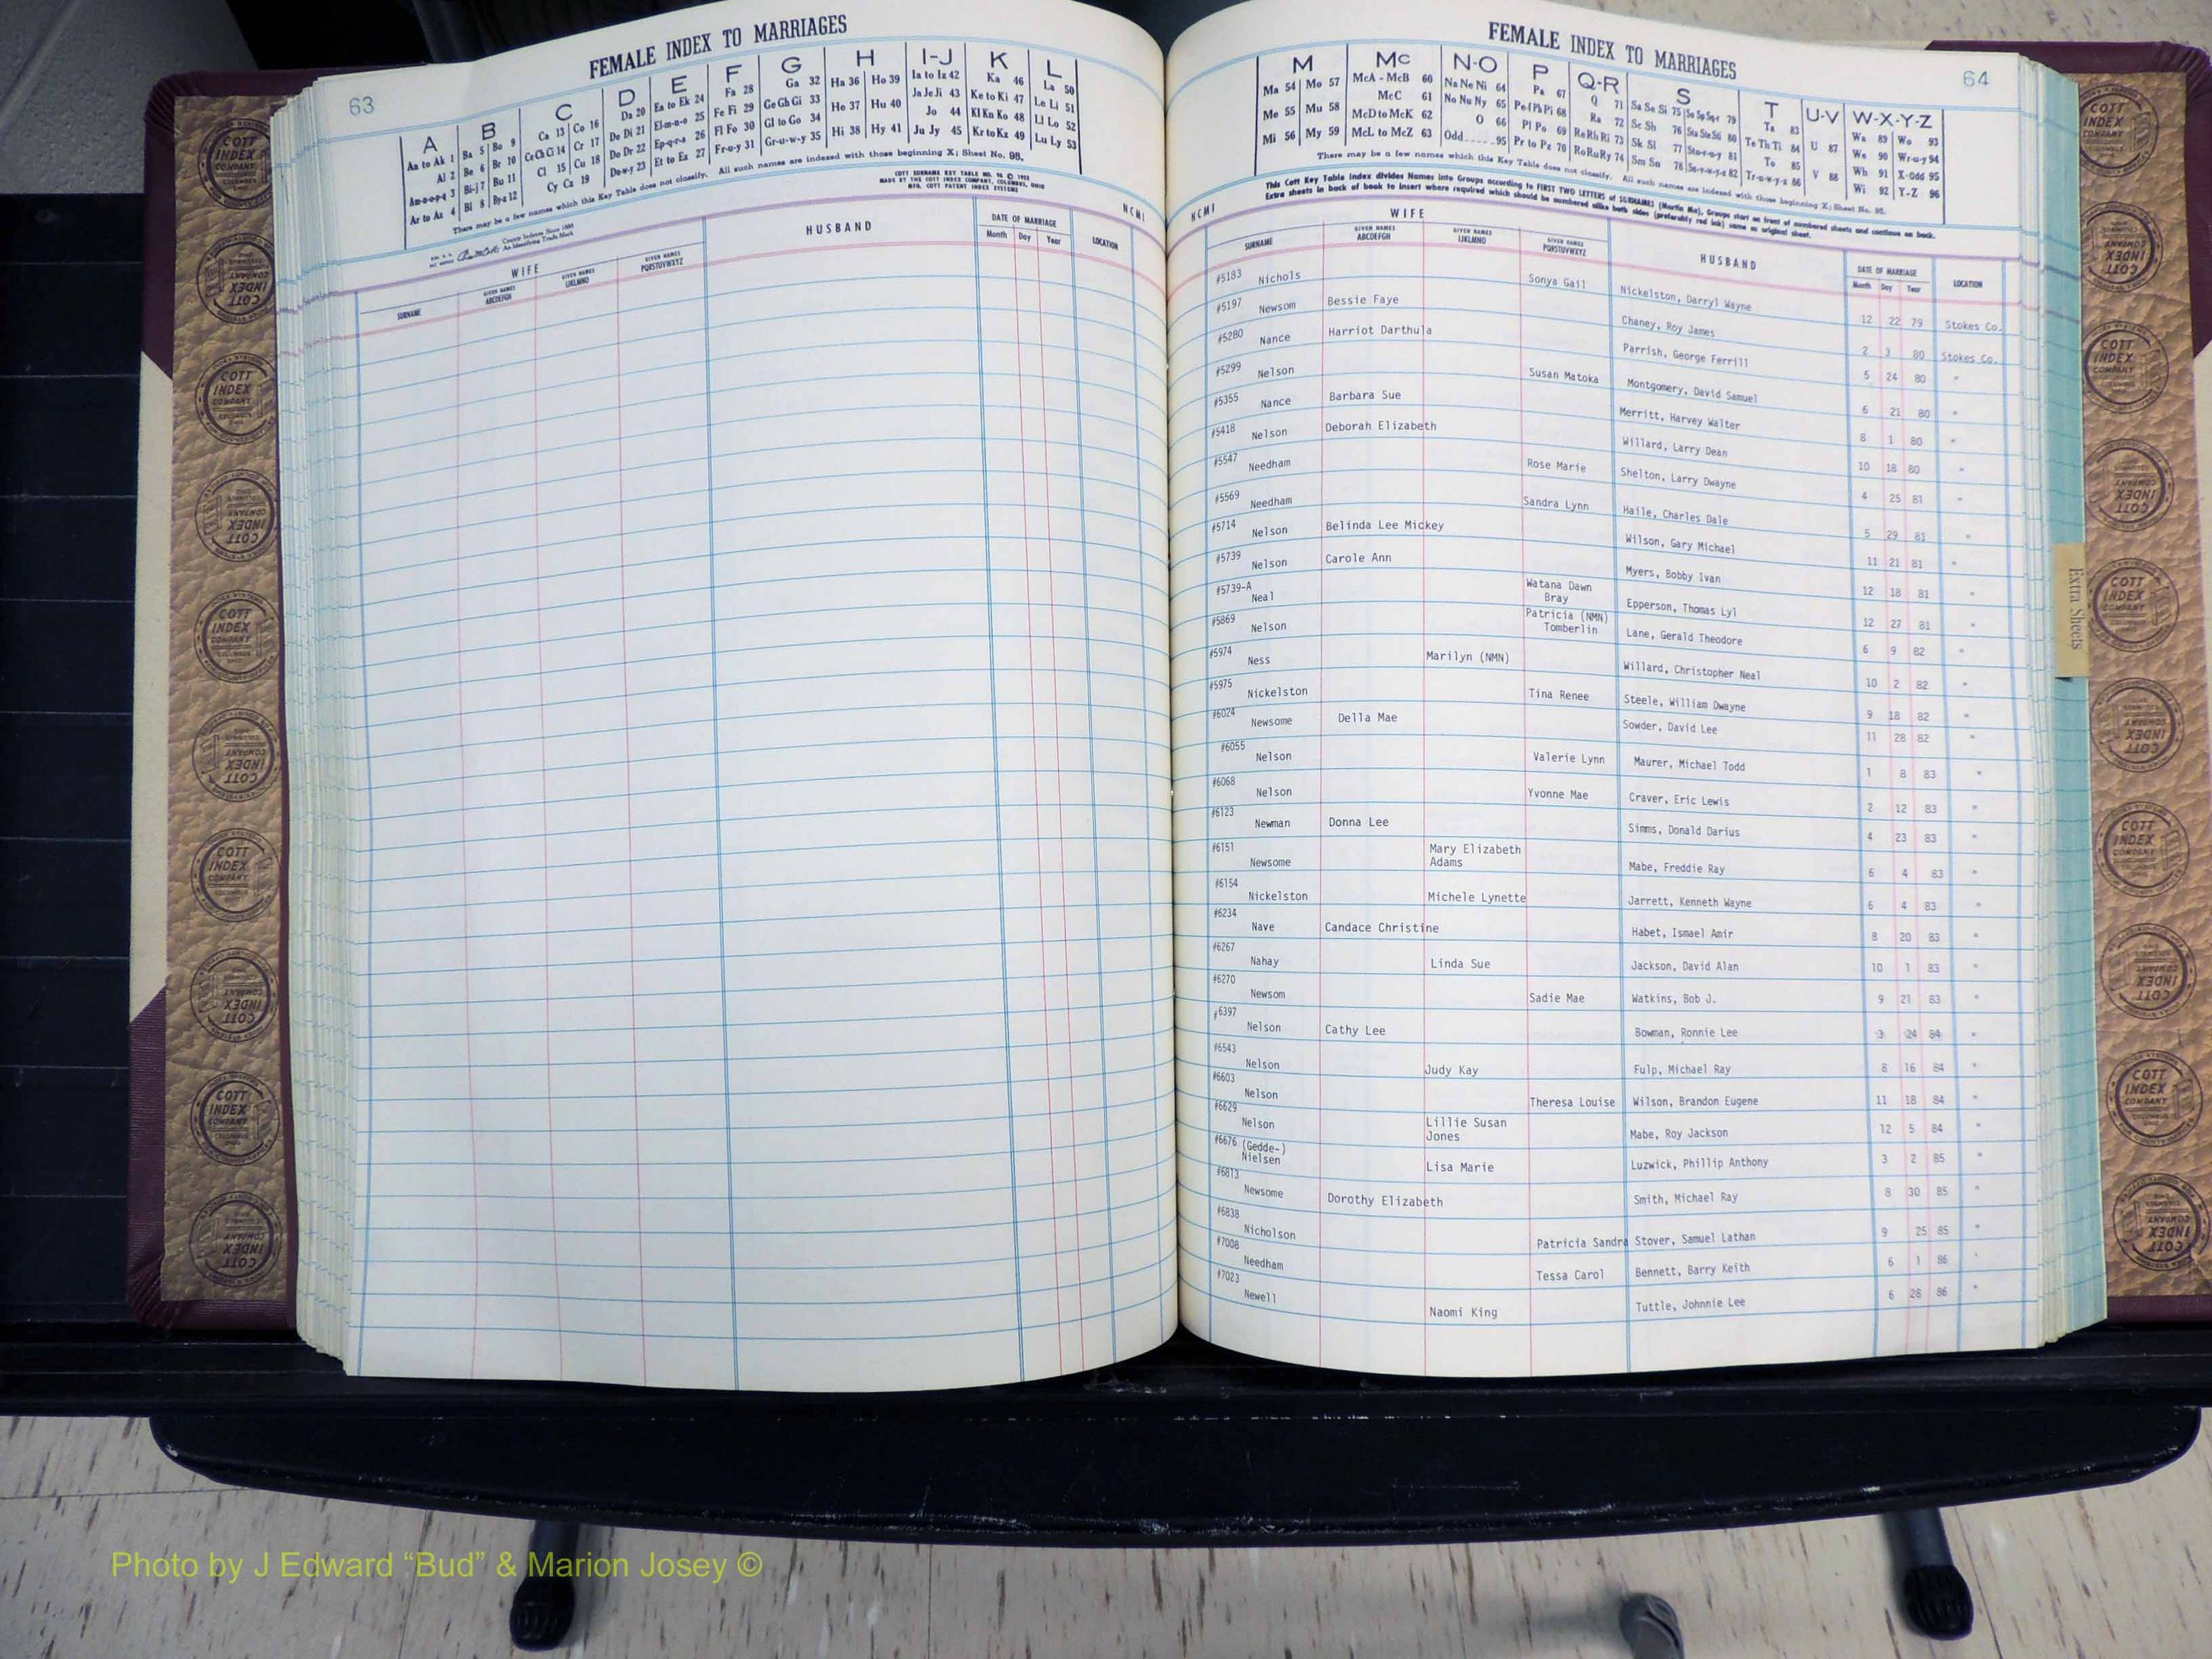 FEMALE INDEX TO MARRIAGES
63
A B C D E F G H I-J K L
Aa to Ak 1 Ba 5 Bo 9 Ca 13 Co 16 Da 20 Ea to Ek 24 Fa 28 Ga 32 Ha 36 Ho 39 Ia to Iz 42 Ka 46 La 50
Al 2 Be 6 Br 10 Ce Ch Ci 14 Cr 17 De Di 21 El-m-n-o 25 Fe Fi 29 Ge Gh Gi 33 He 37 Hu 40 Ja Je Ji 43 Ke to Ki 47 Le Li 51
Am-n-o-p-q 3 Bi-j 7 Bu 11 Cl 15 Cu 18 Do Dr 22 Ep-q-r-s 26 Fl Fo 30 Gl to Go 34 Hi 38 Hy 41 Jo 44 Kl Kn Ko 48 Ll Lo 52
Ar to Az 4 Bl 8 By-z 12 Cy Cz 19 Du-w-y 23 Et to Ez 27 Fr-u-y 31 Gr-u-w-y 35 Ju Jy 45 Kr to Kz 49 Lu Ly 53
There may be a few names which this Key Table does not classify. All such names are indexed with those beginning X; Sheet No. 95.
COTT SURNAME KEY TABLE
MADE BY THE COTT INDEX COMPANY, COLUMBUS, OHIO
MFG. COTT PATENT INDEX SYSTEMS
County Indexes Since 1888
An Identifying Trade Mark
NCMI
WIFE HUSBAND DATE OF MARRIAGE LOCATION
SURNAME GIVEN NAMES ABCDEFGH GIVEN NAMES IJKLMNO GIVEN NAMES PQRSTUVWXYZ Month Day Year
FEMALE INDEX TO MARRIAGES
64
M Mc N-O P Q-R S T U-V W-X-Y-Z
Ma 54 Mo 57 McA - McB 60 Na Ne Ni 64 Pa 67 Q 71 Sa Se Si 75 So Sp Sq-r 79 Ta 83 U 87 Wa 89 Wo 93
Me 55 Mu 58 McC 61 No Nu Ny 65 Pe-f Ph Pi 68 Ra 72 Sc Sh 76 Sta Ste Sti 80 Te Th Ti 84 V 88 We 90 Wr-u-y 94
Mi 56 My 59 McD to McK 62 O 66 Pl Po 69 Re Rh Ri 73 Sk Sl 77 Sto-r-u-y 81 To 85 Wh 91 X-Odd 95
McL to McZ 63 Odd 95 Pr to Pz 70 Ro Ru Ry 74 Sm Sn 78 Su-v-w-y-z 82 Tr-u-w-y-z 86 Wi 92 Y-Z 96
There may be a few names which this Key Table does not classify. All such names are indexed with those beginning X; Sheet No. 95.
This Cott Key Table Index divides Names into Groups according to FIRST TWO LETTERS of SURNAMES (Martin Ma), Groups start on front of numbered sheets and continue on back.
Extra sheets in back of book to insert where required which should be numbered alike both sides (preferably red ink) same as original sheet.
NCMI
WIFE HUSBAND DATE OF MARRIAGE LOCATION
SURNAME GIVEN NAMES ABCDEFGH GIVEN NAMES IJKLMNO GIVEN NAMES PQRSTUVWXYZ Month Day Year
#5183 Nichols Sonya Gail Nickelston, Darryl Wayne 12 22 79 Stokes Co.
#5197 Newsom Bessie Faye Chaney, Roy James 2 3 80 Stokes Co.
#5280 Nance Harriot Darthula Parrish, George Ferrill 5 24 80 "
#5299 Nelson Susan Matoka Montgomery, David Samuel 6 21 80 "
#5355 Nance Barbara Sue Merritt, Harvey Walter 8 1 80 "
#5418 Nelson Deborah Elizabeth Willard, Larry Dean 10 18 80 "
#5547 Needham Rose Marie Shelton, Larry Dwayne 4 25 81 "
#5569 Needham Sandra Lynn Haile, Charles Dale 5 29 81 "
#5714 Nelson Belinda Lee Mickey Wilson, Gary Michael 11 21 81 "
#5739 Nelson Carole Ann Myers, Bobby Ivan 12 18 81 "
#5739-A Neal Watana Dawn Bray Epperson, Thomas Lyl 12 27 81 "
#5869 Nelson Patricia (NMN) Tomberlin Lane, Gerald Theodore 6 9 82 "
#5974 Ness Marilyn (NMN) Willard, Christopher Neal 10 2 82 "
#5975 Nickelston Tina Renee Steele, William Dwayne 9 18 82 "
#6024 Newsome Della Mae Sowder, David Lee 11 28 82 "
#6055 Nelson Valerie Lynn Maurer, Michael Todd 1 8 83 "
#6068 Nelson Yvonne Mae Craver, Eric Lewis 2 12 83 "
#6123 Newman Donna Lee Simms, Donald Darius 4 23 83 "
#6151 Newsome Mary Elizabeth Adams Mabe, Freddie Ray 6 4 83 "
#6154 Nickelston Michele Lynette Jarrett, Kenneth Wayne 6 4 83 "
#6234 Nave Candace Christine Habet, Ismael Amir 8 20 83 "
#6267 Nahay Linda Sue Jackson, David Alan 10 1 83 "
#6270 Newsom Sadie Mae Watkins, Bob J. 9 21 83 "
#6397 Nelson Cathy Lee Bowman, Ronnie Lee 3 24 84 "
#6543 Nelson Judy Kay Fulp, Michael Ray 8 16 84 "
#6603 Nelson Theresa Louise Wilson, Brandon Eugene 11 18 84 "
#6629 Nelson Lillie Susan Jones Mabe, Roy Jackson 12 5 84 "
#6676 (Gedde-) Nielsen Lisa Marie Luzwick, Phillip Anthony 3 2 85 "
#6813 Newsome Dorothy Elizabeth Smith, Michael Ray 8 30 85 "
#6838 Nicholson Patricia Sandra Stover, Samuel Lathan 9 25 85 "
#7008 Needham Tessa Carol Bennett, Barry Keith 6 1 86 '
#7023 Newell Naomi King Tuttle, Johnnie Lee 6 28 86 "
Extra Sheets
COTT INDEX COMPANY
Photo by J Edward “Bud” & Marion Josey ©